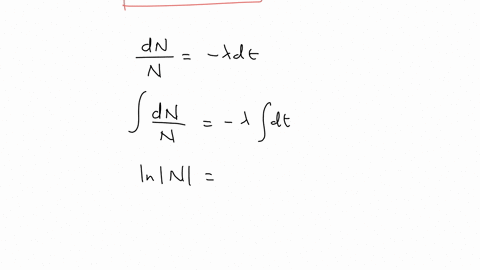 dN/N = -λdt
∫ dN/N = -λ ∫dt
ln|N| =